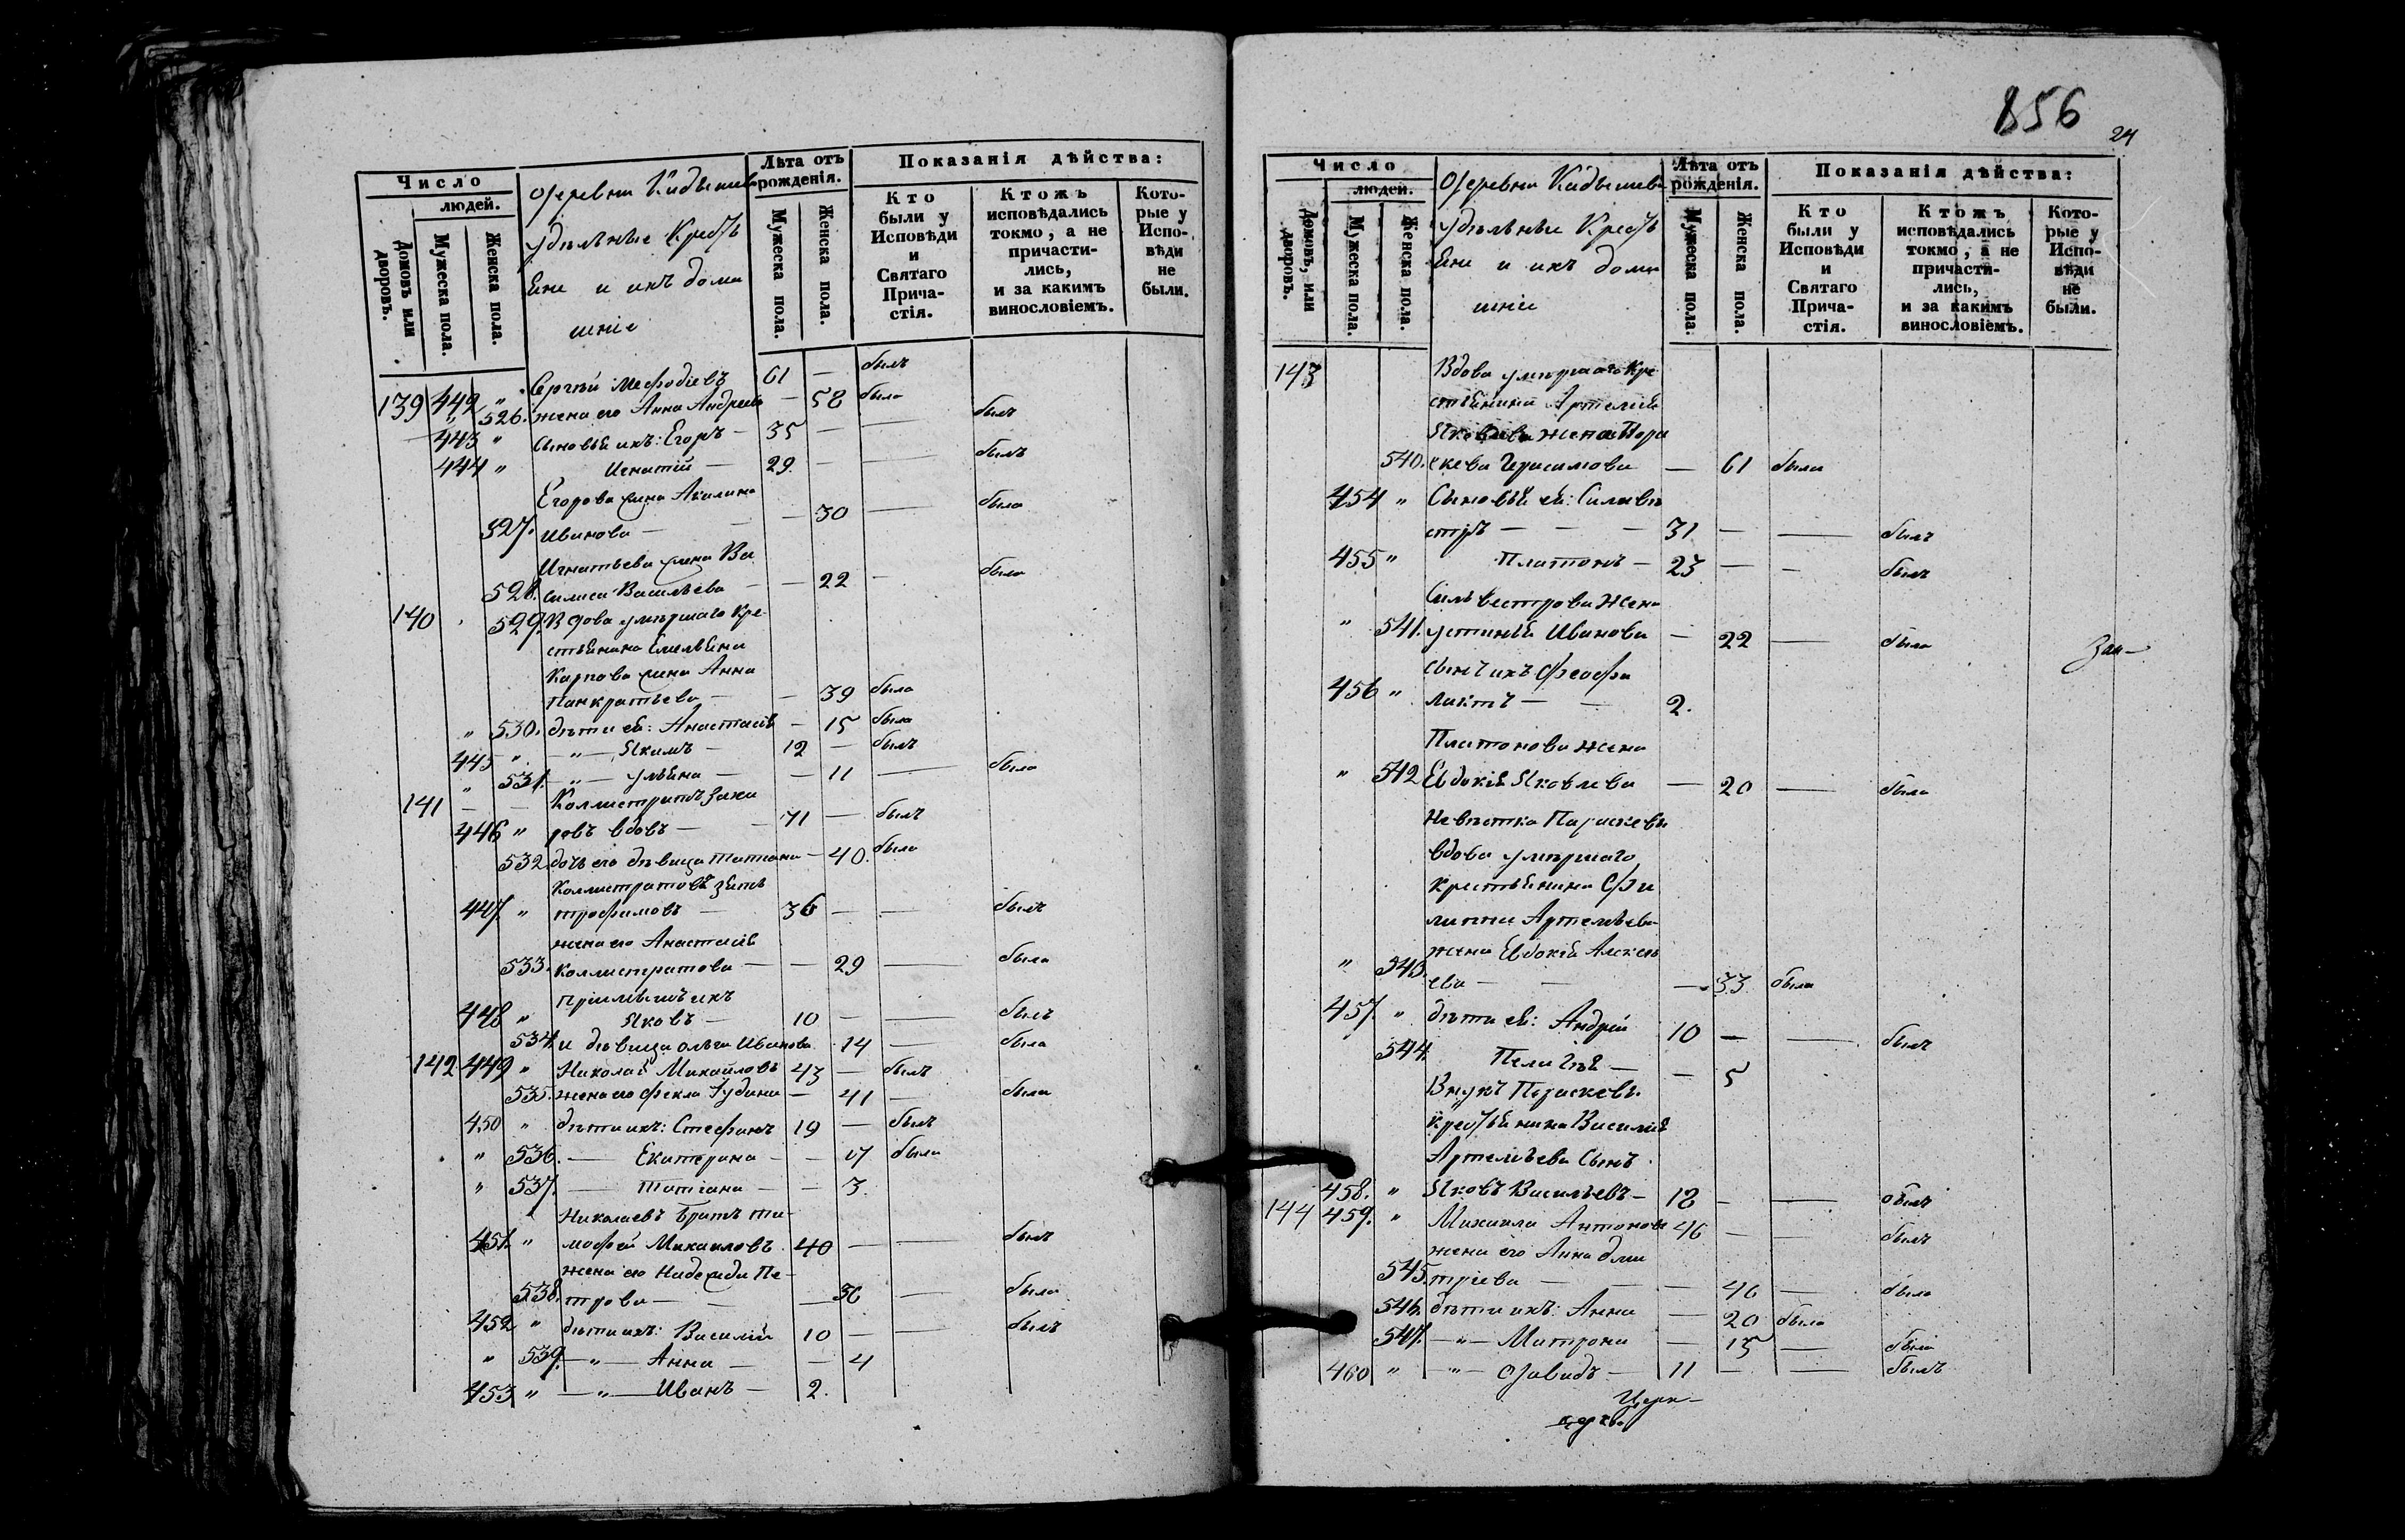 Число
людей.
Домовъ или дворовъ.
Мужеска пола.
Женска пола.
Деревни Кадышева
удѣльные Крестья
ане и ихъ дома
шніе
Лѣта отъ рожденія.
Мужеска пола.
Женска пола.
Показанія дѣйства:
Кто были у Исповѣди и Святаго Прича-стія.
Ктожъ исповѣдались токмо, а не причасти-лись, и за какимъ винословіемъ.
Кото-рые у Испо-вѣди не были.
139 442 " Сергѣй Мефодіевъ 61 — былъ
" 526. жена его Анна Андреева — 58 была
443 " Сыновья ихъ: Егоръ — 35 — — былъ
444 " Игнатій — 29. — — былъ
Егорова жена Акилина
527. Иванова — — — 30 — была
Игнатьева жена Ва
528. силиса Васильева — — 22 — была
140 529. Вдова умершаго Кре-
стьянина Емельяна
Карпова жена Анна
Панкратьева — — 39 была
" 530. дѣти ея: Анастасія — 15 была
445 " — " — Якимъ — 12 — былъ
" 531. — " — Ульяна — — 11 — была
141 — — Коллистратъ Заха
446 " ровъ вдовъ — — 71 — былъ
532. дочь его дѣвица Татіана — 40. была
Коллистратовъ зять
447. " Трофимовъ — 36 — — былъ
жена его Анастасія
533. Коллистратова — — 29 — была
Пріимышъ ихъ
448 " Яковъ — 10 — — былъ
534. и дѣвица Ольга Иванова 14 — была
142 449 " Николай Михайловъ 43 — былъ
535. жена его Фекла Іудина — 41 — была
450 " дѣти ихъ: Стефанъ 19 — былъ
" 536. — Екатерина — — 17 была
" 537. — Татіана — — 3.
Николаевъ братъ Ти-
451. " мофей Михаиловъ 40 — — былъ
жена его Надежда Пе-
538. трова — — — 36 — была
452 " дѣти ихъ: Василій 10 — — былъ
" 539. — " — Анна — — 4
453 " — " — Иванъ — 2.
856
24
Число
людей.
Домовъ, или дворовъ.
Мужеска пола.
Женска пола.
Деревни Кадышева
удѣльные Крестья
ане и ихъ дома
шніе
Лѣта отъ рожденія.
Мужеска пола.
Женска пола.
Показанія дѣйства:
Кто были у Исповѣди и Святаго Прича-стія.
Ктожъ исповѣдались токмо, а не причасти-лись, и за какимъ винословіемъ.
Кото-рые у Испо-вѣди не были.
143 Вдова умершаго Кре
стьянина Артемія
Яковлева жена Пара
540. скева Герасимова — 61 была
454 " Сыновья ея: Сильве
стръ — — — 31 — — былъ
455 " Платонъ — 23 — — былъ
Сильвестрова жена
" 541. Устинія Иванова — 22 — была
сынъ ихъ Феофи
456 " лактъ — — 2.
Платонова жена
" 542 Евдокія Яковлева — 20 — была
Невѣстка Параскевы
вдова умершаго
крестьянина Фи
липпа Артемьева
жена Евдокія Алексѣ
" 543. ева — — — 33. была
457. " дѣти ея: Андрей 10 — — былъ
544. Пелагія — — 5
Внукъ Параскевы
крестьянина Василія
Артемьева сынъ
458. " Яковъ Васильевъ — 18 — — былъ
144 459. " Михаила Антоновъ 46 — — былъ
жена его Анна Дми
545. тріева — — — 46 — была
546. дѣти ихъ: Анна — 20 была
547. — " — Матрона — 15 — была
460 " — " — Давидъ — 11 — — былъ